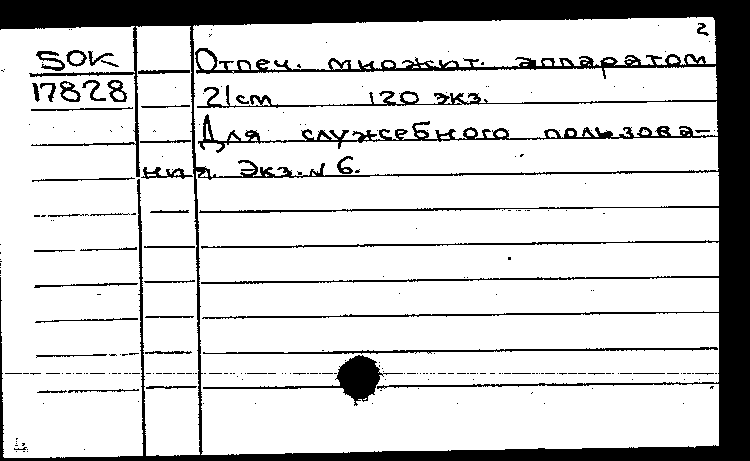 2
SOK Отпеч. множит. аппаратом
17828 21cm 120 экз.
Для служебного пользова-
ния. Экз. N 6.